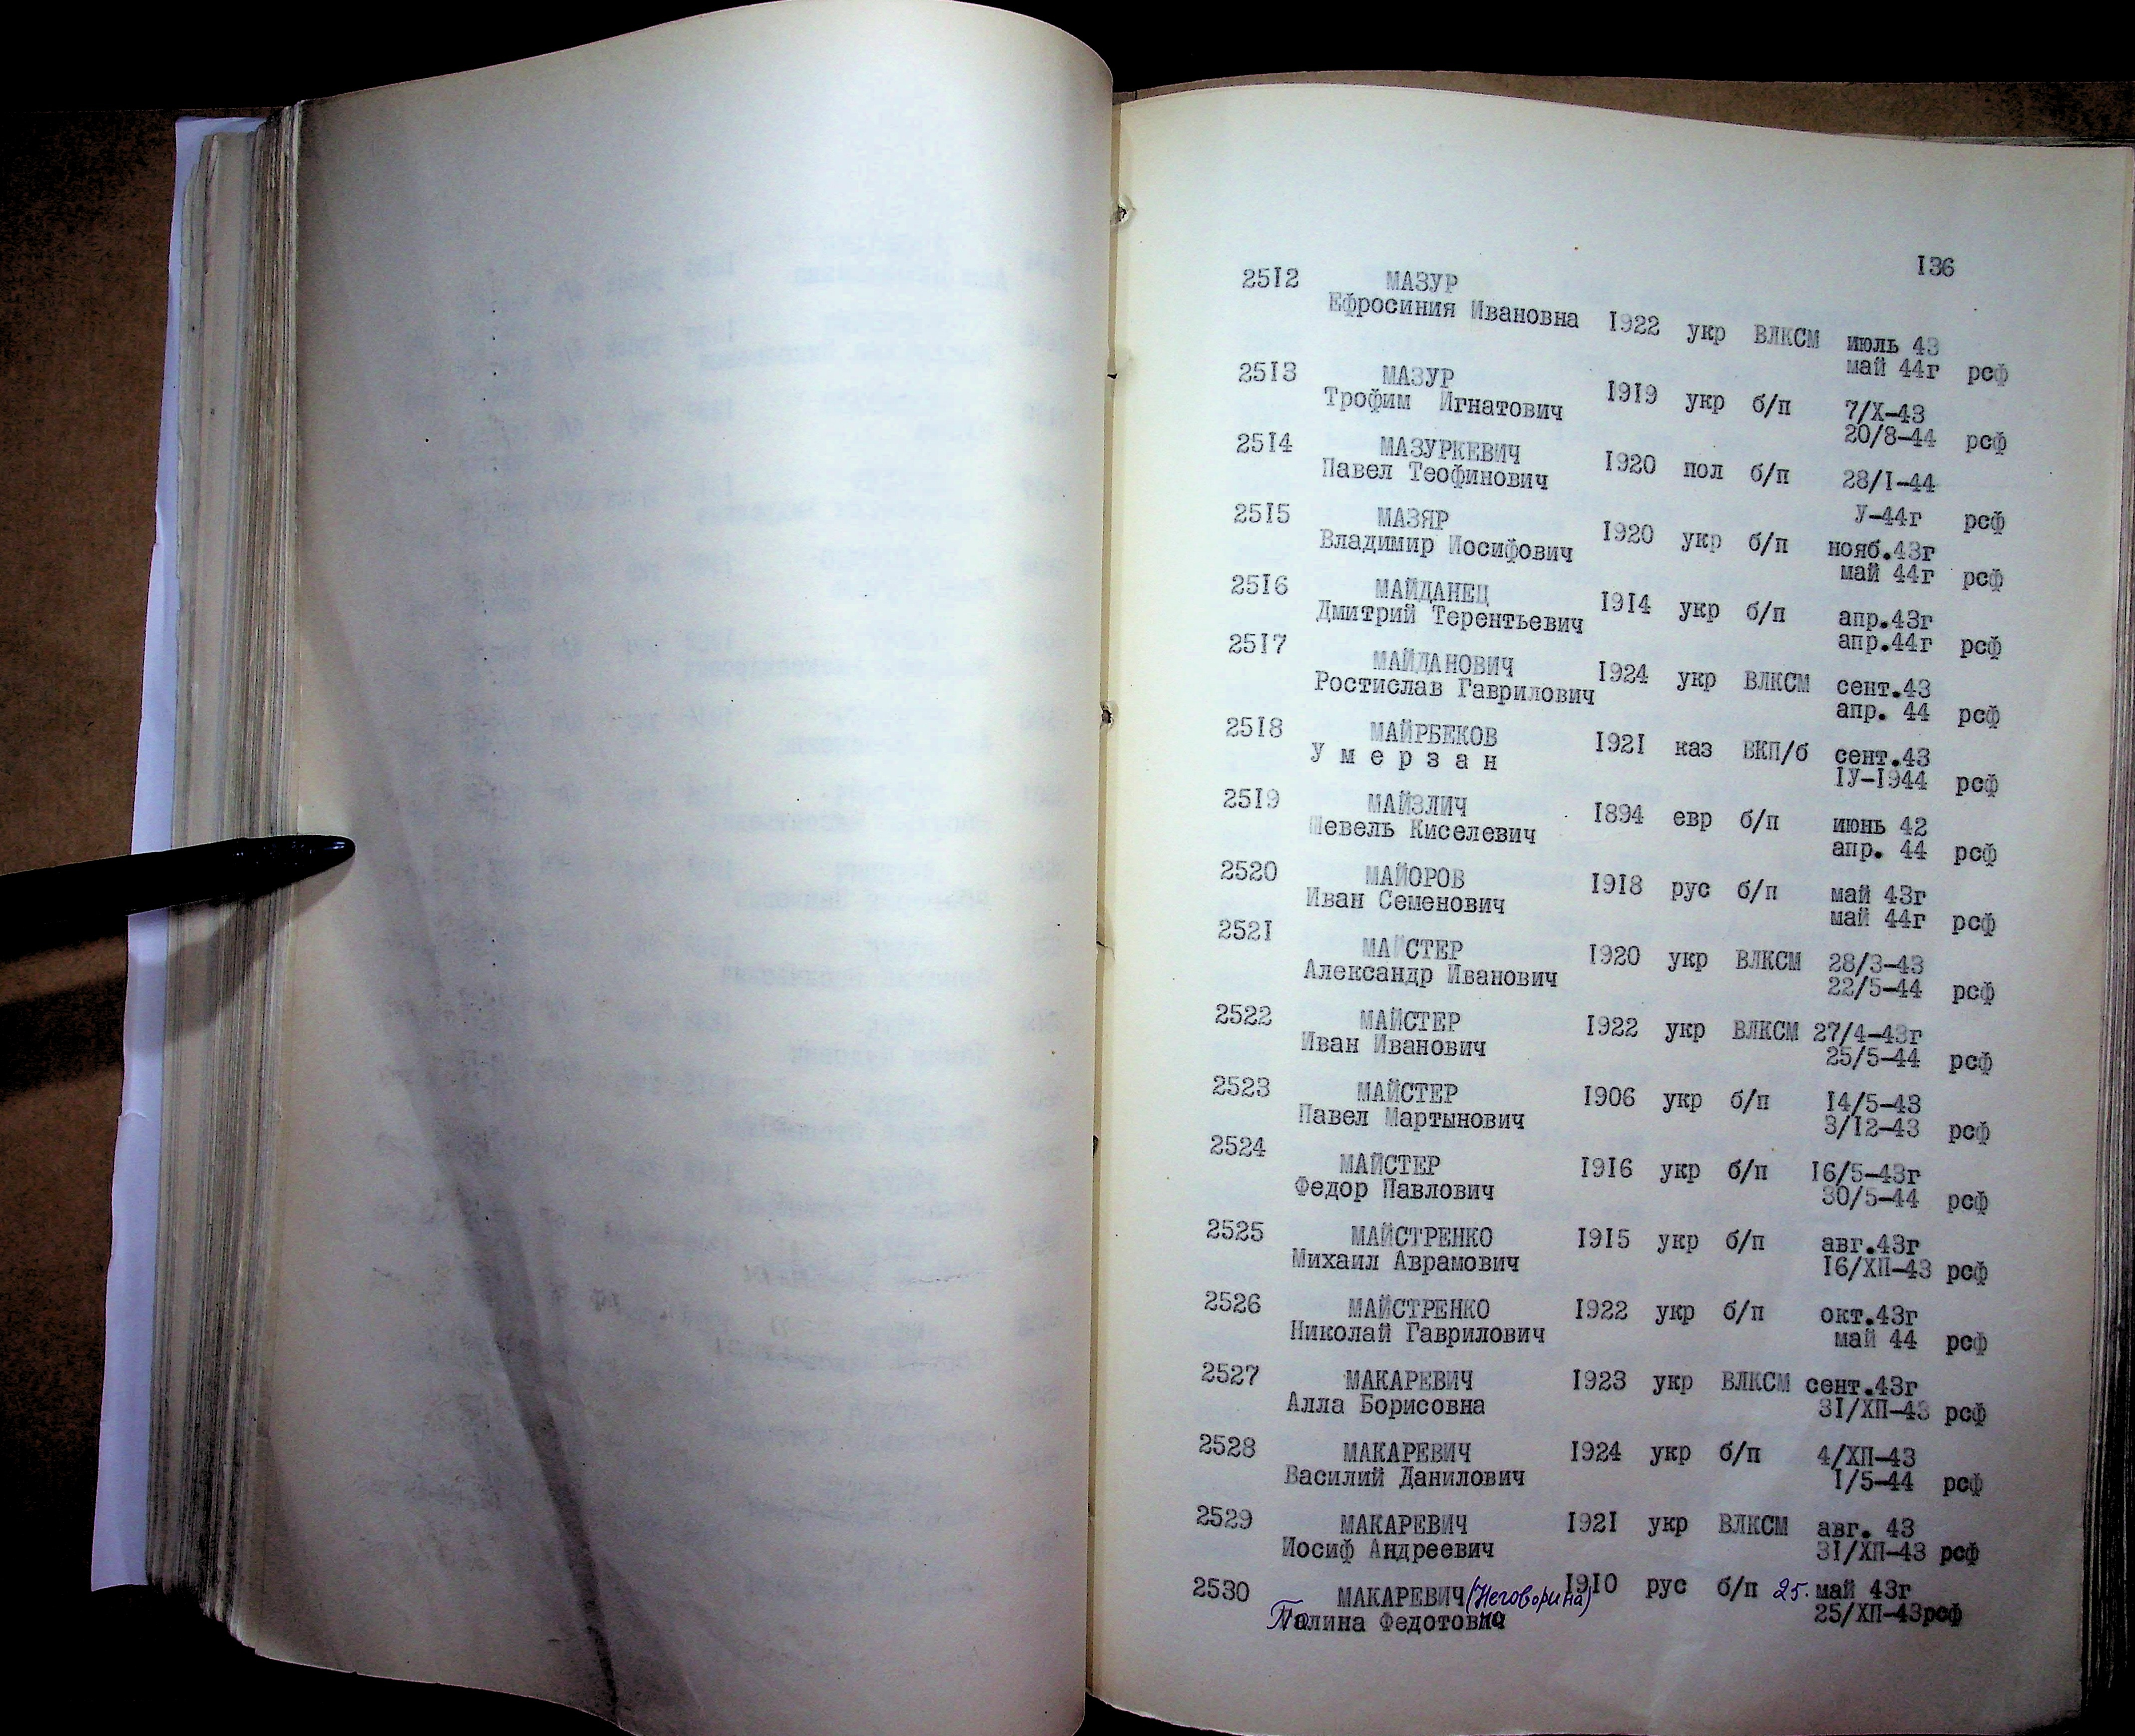 136
2512 МАЗУР
Ефросиния Ивановна 1922 укр ВЛКСМ июль 43
май 44г рсф
2513 МАЗУР 1919 укр б/п 7/X-43
Трофим Игнатович 20/8-44 рсф
2514 МАЗУРКЕВИЧ 1920 пол б/п 28/I-44
Павел Теофинович У-44г рсф
2515 МАЗЯР 1920 укр б/п нояб.43г
Владимир Иосифович май 44г рсф
2516 МАЙДАНЕЦ 1914 укр б/п апр.43г
Дмитрий Терентьевич апр.44г рсф
2517 МАЙДАНОВИЧ 1924 укр ВЛКСМ сент.43
Ростислав Гаврилович апр. 44 рсф
2518 МАЙРБЕКОВ 1921 каз ВКП/б сент.43
У м е р з а н IУ-1944 рсф
2519 МАЙЗЛИЧ 1894 евр б/п июнь 42
Шевель Киселевич апр. 44 рсф
2520 МАЙОРОВ 1918 рус б/п май 43г
Иван Семенович май 44г рсф
2521 МАЙСТЕР 1920 укр ВЛКСМ 28/3-43
Александр Иванович 22/5-44 рсф
2522 МАЙСТЕР 1922 укр ВЛКСМ 27/4-43г
Иван Иванович 25/5-44 рсф
2523 МАЙСТЕР 1906 укр б/п 14/5-43
Павел Мартынович 3/12-43 рсф
2524 МАЙСТЕР 1916 укр б/п 16/5-43г
Федор Павлович 30/5-44 рсф
2525 МАЙСТРЕНКО 1915 укр б/п авг.43г
Михаил Аврамович 16/ХП-43 рсф
2526 МАЙСТРЕНКО 1922 укр б/п окт.43г
Николай Гаврилович май 44 рсф
2527 МАКАРЕВИЧ 1923 укр ВЛКСМ сент.43г
Алла Борисовна 31/ХП-43 рсф
2528 МАКАРЕВИЧ 1924 укр б/п 4/ХП-43
Василий Данилович 1/5-44 рсф
2529 МАКАРЕВИЧ 1921 укр ВЛКСМ авг. 43
Иосиф Андреевич 31/ХП-43 рсф
2530 МАКАРЕВИЧ (Неговорина) 1910 рус б/п 25. май 43г
Галина Федотовна 25/ХП-43рсф